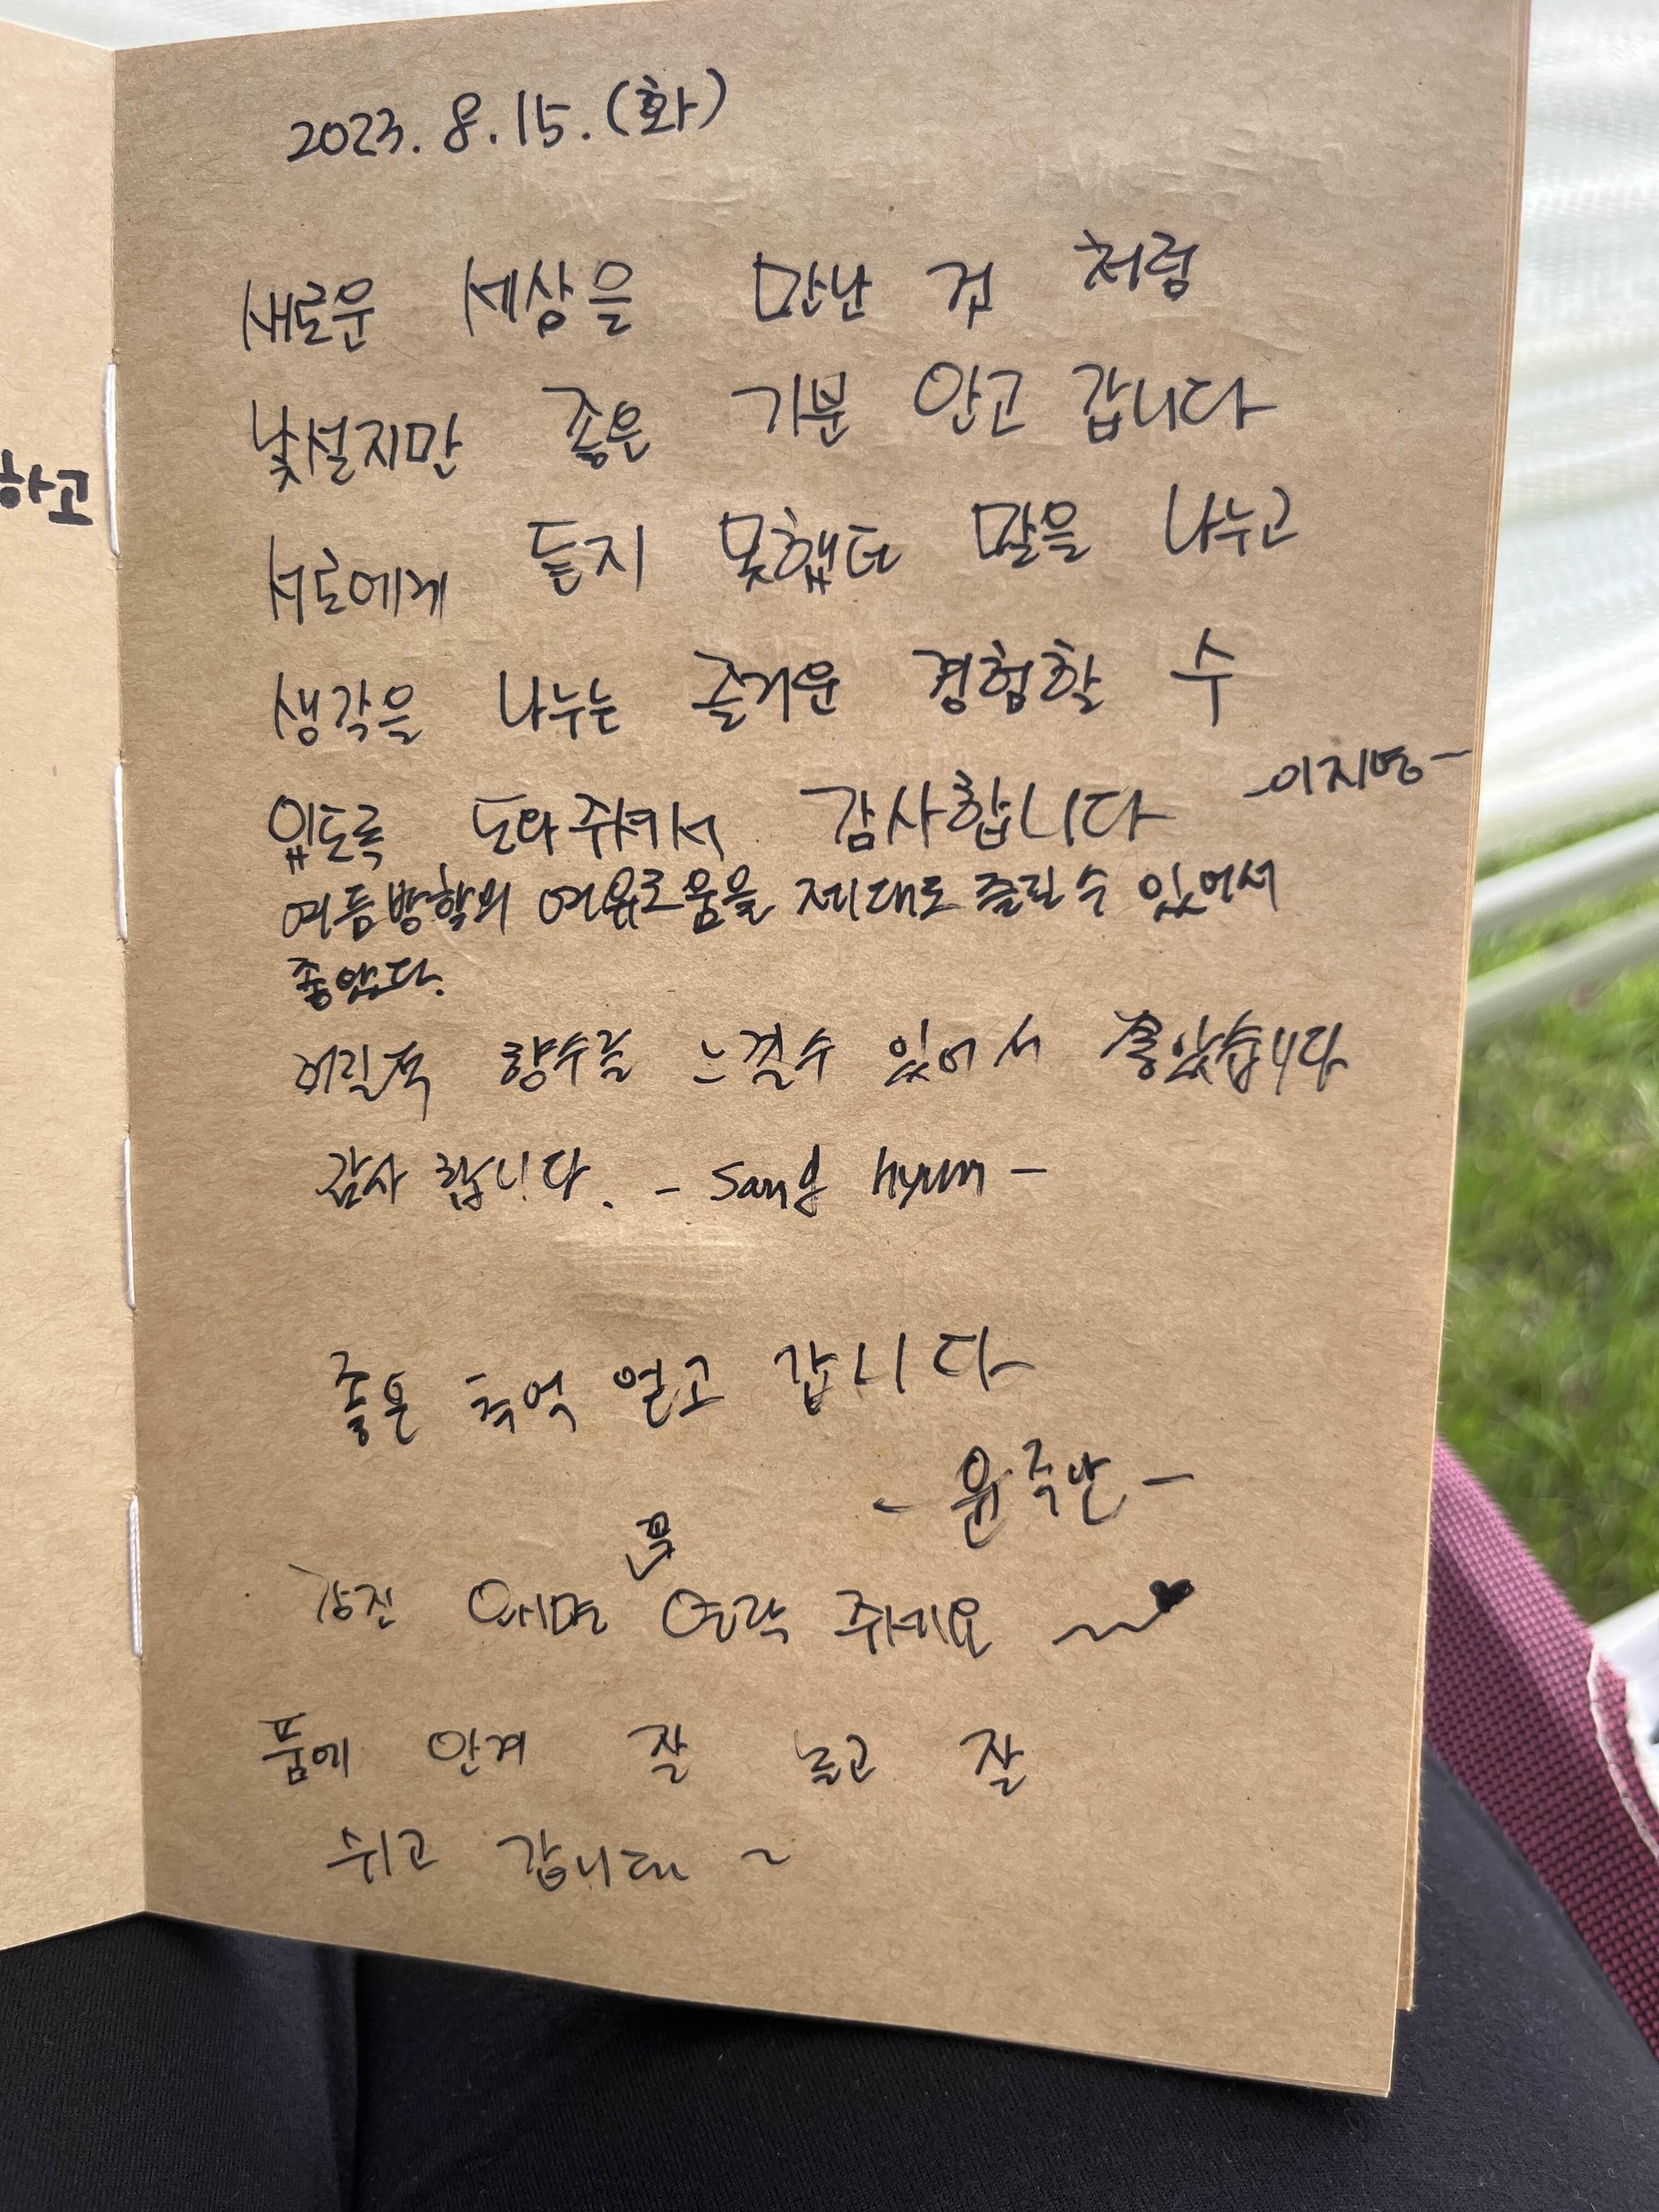 하고
2023. 8. 15. (화)
새로운 세상을 만난 것 처럼
낯설지만 좋은 기분 안고 갑니다
서로에게 듣지 못했던 말을 나누고
생각을 나누는 즐거운 경험할 수
있도록 도와주셔서 감사합니다
여름방학의 여유로움을 제대로 즐길 수 있어서
좋았다.
어릴적 향수를 느낄수 있어서 좋았습니다
감사 합니다. - Sang hyun -
좋은 추억 얻고 갑니다
강진 오시면 꼭 연락 주세요 ~♥
품에 안겨 잘 놀고 잘
쉬고 갑니다 ~